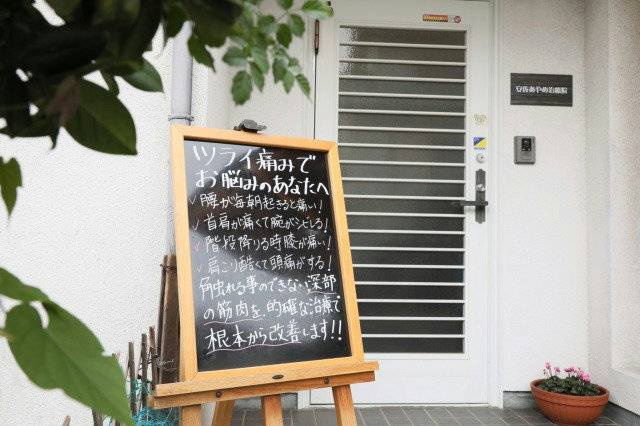 ツライ痛みで
お悩みのあなたへ
✓腰が毎朝起きると痛い!
✓首肩が痛くて腕がシビレる!
✓階段降りる時膝が痛い!
✓肩こり酷くて頭痛がする!
触れる事のできない深部
の筋肉を、的確な治療で
根本から改善します!!
安佐あやめ治療院